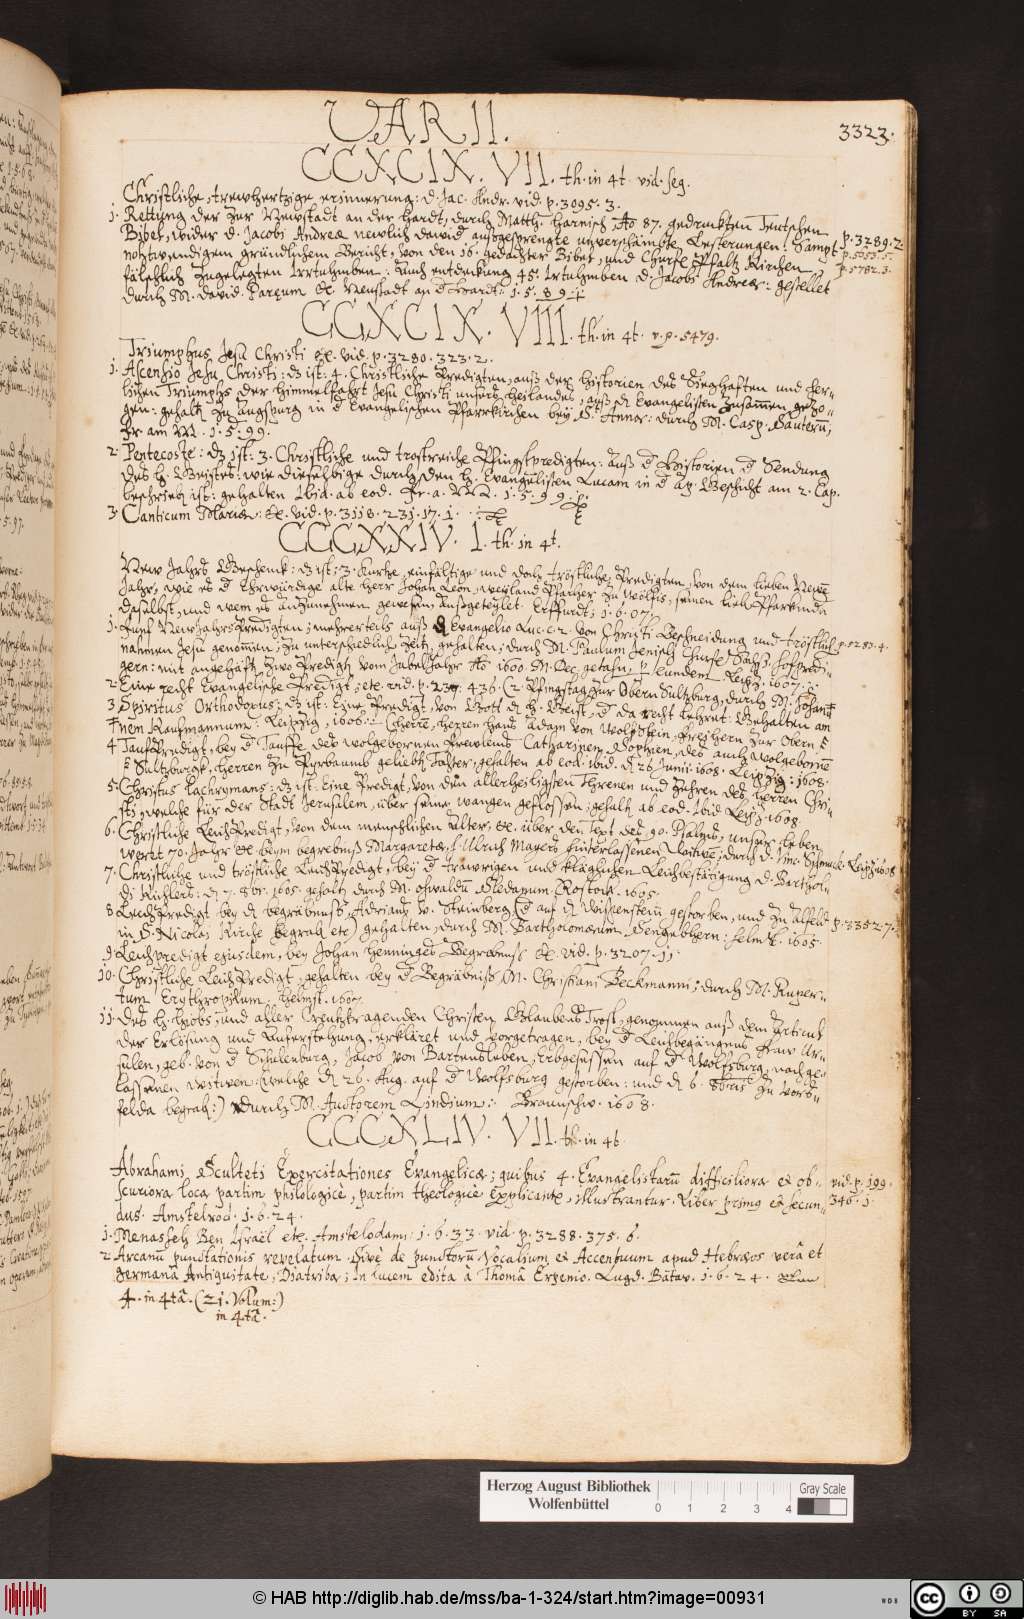 VARII.
3323.
CCXCIX. VII. th. in 4t vid. seq.
Christliche, trewhertzige erinnerung: d. Jac. Andr. vid. p. 3095. 3.
1. Rettung der zur Newstadt an der Hardt, durch Matth. Harnisch, Ao 87. gedruckten Teutschen
Bibel, wider d. Jacobi Andreæ newlich dawid außgesprengte unverschämpte Lesterungen: Sampt
p. 3289. 2
p. 5655. 5.
p. 5782. 3.
nohtwendigem gründlichem Bericht, von den 16. gedachter Bibel, und Churfe Pfaltz Kirchen
fälschlich zugelegten Irrtuhmben: Auch entdeckung 45. Irtuhmben d. Jacobi Andreæ: gestellet
durch M. David. Pareum &c. Newstadt an d Hardt: 1. 5. 89.
CCXCIX. VIII. th. in 4t. v. p. 5479.
Triumphus Jesu Christi &c. vid. p. 3280. 323. 2.
1. Ascensio Jesu Christi: dz ist: 4. Christliche Predigten, auß der Historien des Sieghafften und Her-
lichen Triumphs der Himmelfahrt Jesu Christi unsers heilandes, auß d Evangelisten zusammen gezo-
gen: gehaltz zu Augspurg in d Evangelischen Pfarrkirchen bey S. Anna: durch M. Casp. Sauterū,
Fr. am M. 1. 5. 99.
2. Pentecoste: dz ist: 3. Christliche und trostreiche Pfingstpredigten: auß d Historien d Sendung
des h. Geistes: wie dieselbige durch den h. Evangelisten Lucam in d Ap. Geschicht am 2. Cap.
beschrieb ist: gehalten Ibid. ab eod. Fr. a. M. 1. 5. 99.
3. Canticum Mariæ: &c. vid. p. 3118. 231. 17. 1.
CCCXXIV. 1. th. in 4t.
New Jahrs Geschenck: dz ist: 3. kurtze, einfältige und doch tröstliche Predigten, von dem lieben New
Jahr, wie es d Ehrwürdige alte Herr Johan Leon, weyland Pfarher zu Wölfis, seinen lieb Pfarkindn
daselbst, und wem es anzunehmen gewesen, ausgeteylet. Erffurdt. 1. 6. 07.
1. Fünf NewJahrsPredigten; mehrerteils auß d Evangelio Luc. c. 2. von Christi Beschneidung und tröstlich
p. 5283. 4.
nahmen Jesu genommen; zu unterschiedlich Zeitz gehalten; durch M. Paulum Jenisch Churfe Sächs. Hofpredi-
gern: mit angehäfftz zwo Predigtz vom Jubeljahr Ao 1600. M. Dec. getahn, p eundem. Leipz. 1607.
2. Eine recht Evangelische Predigt; etc. vid. p. 237. 436. (2. Pfingstag zur Obern Sultzburg, durch M. Johan
3. Spiritus Orthodoxus; dz ist: Eine Predigt, von Gott d h. Geist, d da recht lehret: Gehalten am
nem Kaufmannum. Leipzig, 1606.: (Herrn, Herrn Hans Adam von Wolfstein, Freihern zur Obern
4. TaufPredigt, bey d Tauffe des wolgebornen Frewleins Catharinen Sophien, des auch wolgebornē
Sultzburgk, Herren zu Pyrbaumb geliebtz Tohter, gehalten ab eod. ibid. d 26 Junii. 1608. Leipzig: 1608.
5. Christus lachrymans; dz ist. Eine Predigt, von den allerheiligsten Threnen und Zähren des Herren Chri-
sti; welche für der Stadt Jerusalem, über seine wangen geflossen; gehaltz ab eod. Ibid. Leipz. 1608.
6. Christliche LeichPredigt, von dem menschlichen Alter, &c. über den text des 90. Psalms, unser Leben
wertt 70. Jahr &c. beym begrebnuß Margaretæ, H Ulrich Mayers hinterlassenen Witwē; durch D. Vinc. Schmuck. Leipz. 1608.
7. Christliche und tröstliche LeichPredigt, bey d trawrigen und kläglichen Leichbestätigung D. Barthol-
di Richters: d 7. 8br. 1605. gehaltz durch M. Oswaldū Bledanum. Rostock. 1605.
8. LeichPredigt bey d begräbnuß, Adriantz v. Steinberg (d auf d Wispenstein gestorben, und zu Alfeld
p. 3352. 7.
in S. Nicolai Kirche begrabz etc) gehalten, durch M. Bartholomæum Sengebähern: Helmst. 1605.
9. Leichpredigt ejusdem, bey Johan Henninges Begräbnuß &c. vid. p. 3207. 11.
10. Christliche LeichPredigt, gehalten bey d Begräbniß M. Christiani Beckmanni; durch M. Ruper-
tum Erythropilum, Helmst. 1607.
11. Des h. Hiobs, und aller Creutztragenden Christen GlaubensTrost, genommen auß dem Articul
der Erlösung und Auferstehung, erkläret und vorgetragen, bey d Leichbegängnus Fraw Ur-
sulen, geb. von d Schulenburg, Jacob von Bartensleben, Erbgesessen auf d Wolfsburg, nachge-
lassenen witwen: (welche d 26. Aug. auf d Wolfsburg gestorben: und d 6. 8bris zu Vors-
felda begrabz:) durch M. Auctorem Lindium: Braunschw. 1608.
CCCXLIV. VII. th. in 4t.
Abrahami Sculteti Exercitationes Evangelicæ; quibus 4. Evangelistarū difficiliora et ob-
vid. p. 199.
scuriora loca partim philologicè, partim theologicè explicantr, illustrantur. Liber primq et secun-
346. 1
dus. Amstelrod. 1. 6. 24.
1. Menasseh Ben Israel etc. Amstelodami 1. 6. 33. vid. p. 3288. 375. 6.
2. Arcanū punctationis revelatum. Sive de punctorū Vocalium et Accentuum apud Hebræos verâ et
germanâ Antiquitate; Diatriba; in lucem edita à Thomâ Erpenio. Lugd. Batav. 1. 6. 24.
4. in 4tâ. (21. Volum:)
in 4tâ.
Herzog August Bibliothek
Wolfenbüttel
0 1 2 3 4
Gray Scale
© HAB http://diglib.hab.de/mss/ba-1-324/start.htm?image=00931
WDB
cc BY SA